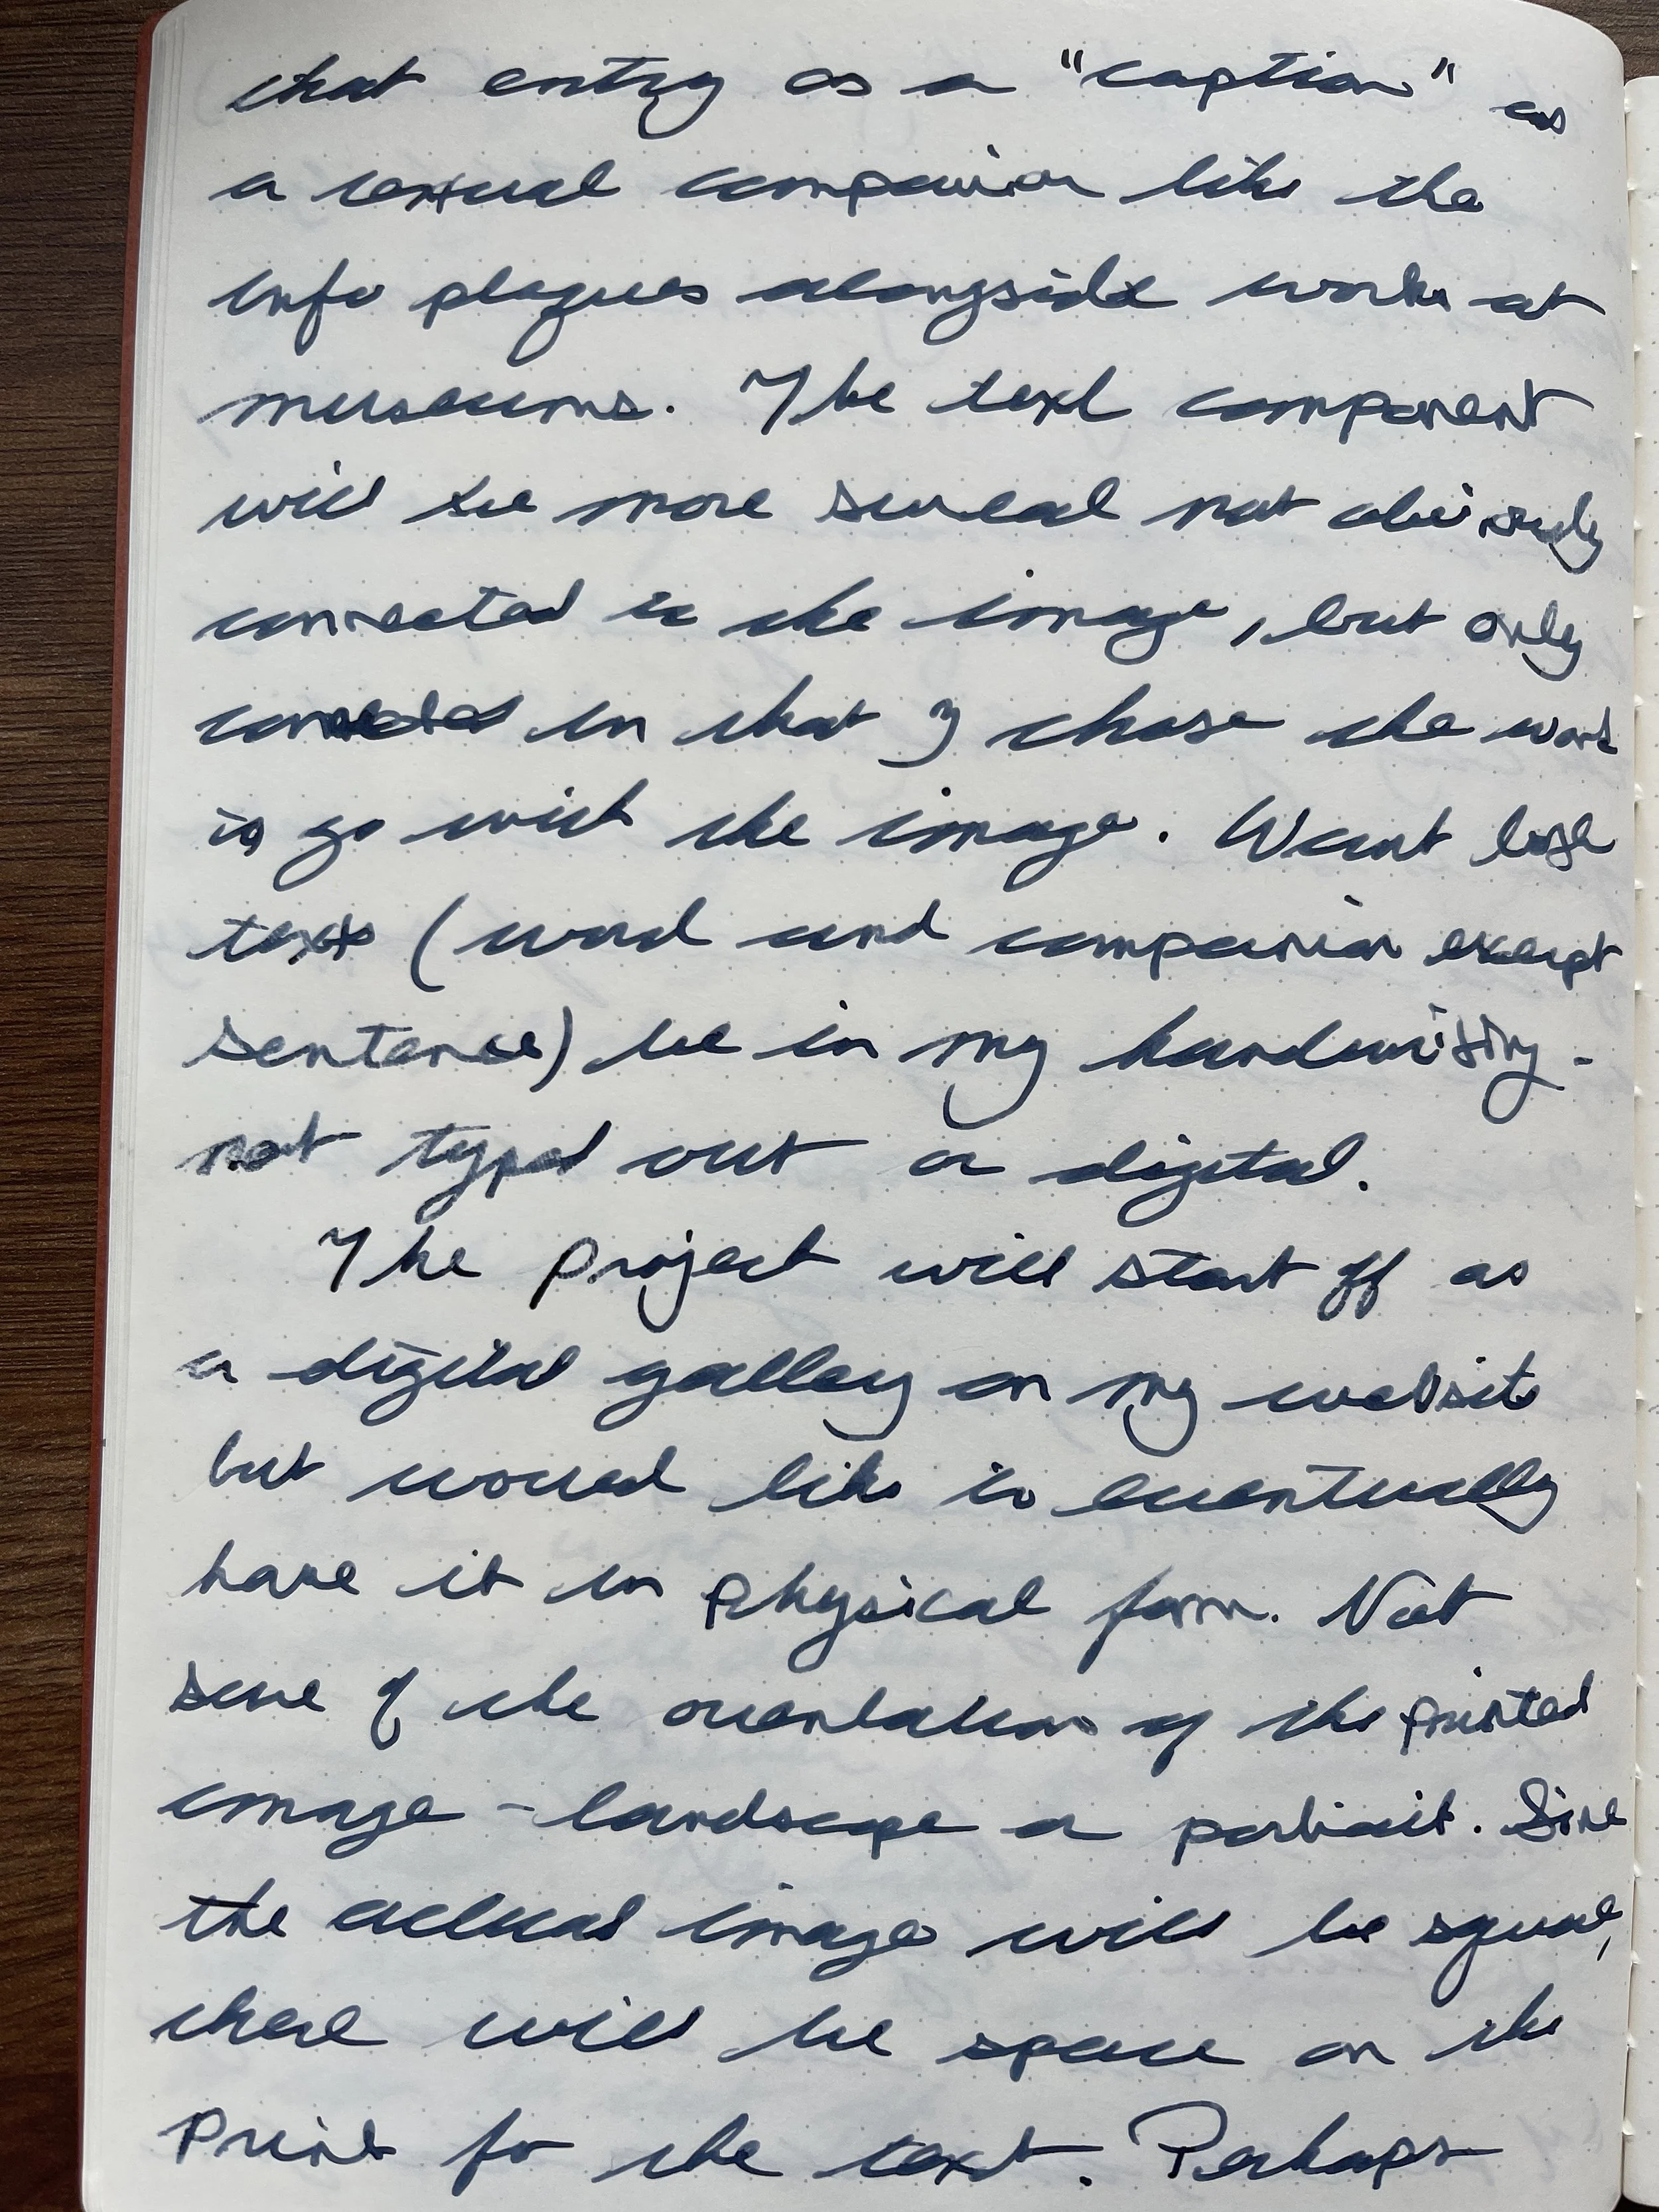 that entry as a "caption" as
a textual companion like the
info plaques alongside works at
museums. The text component
will be more surreal not obviously
connected to the image, but only
connected in that I chose the word
to go with the image. Want both
texts (word and companion excerpt
sentence) be in my handwriting -
not typed out or digital.
The project will start off as
a digital gallery on my website
but would like to eventually
have it in physical form. Not
sure of the orientation of the printed
image - landscape or portrait. Since
the actual image will be square,
there will be space on the
print for the text. Perhaps